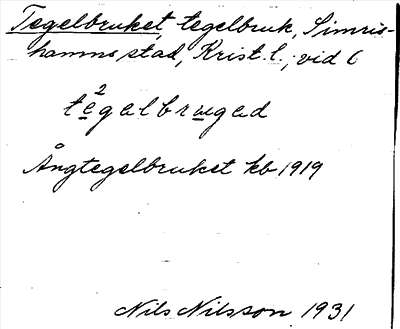 Tegelbruket, tegelbruk, Simris-
hamns stad, Krist. l.; vid 6
te²galbrugad
Ångtegelbruket kb 1919
Nils Nilsson 1931